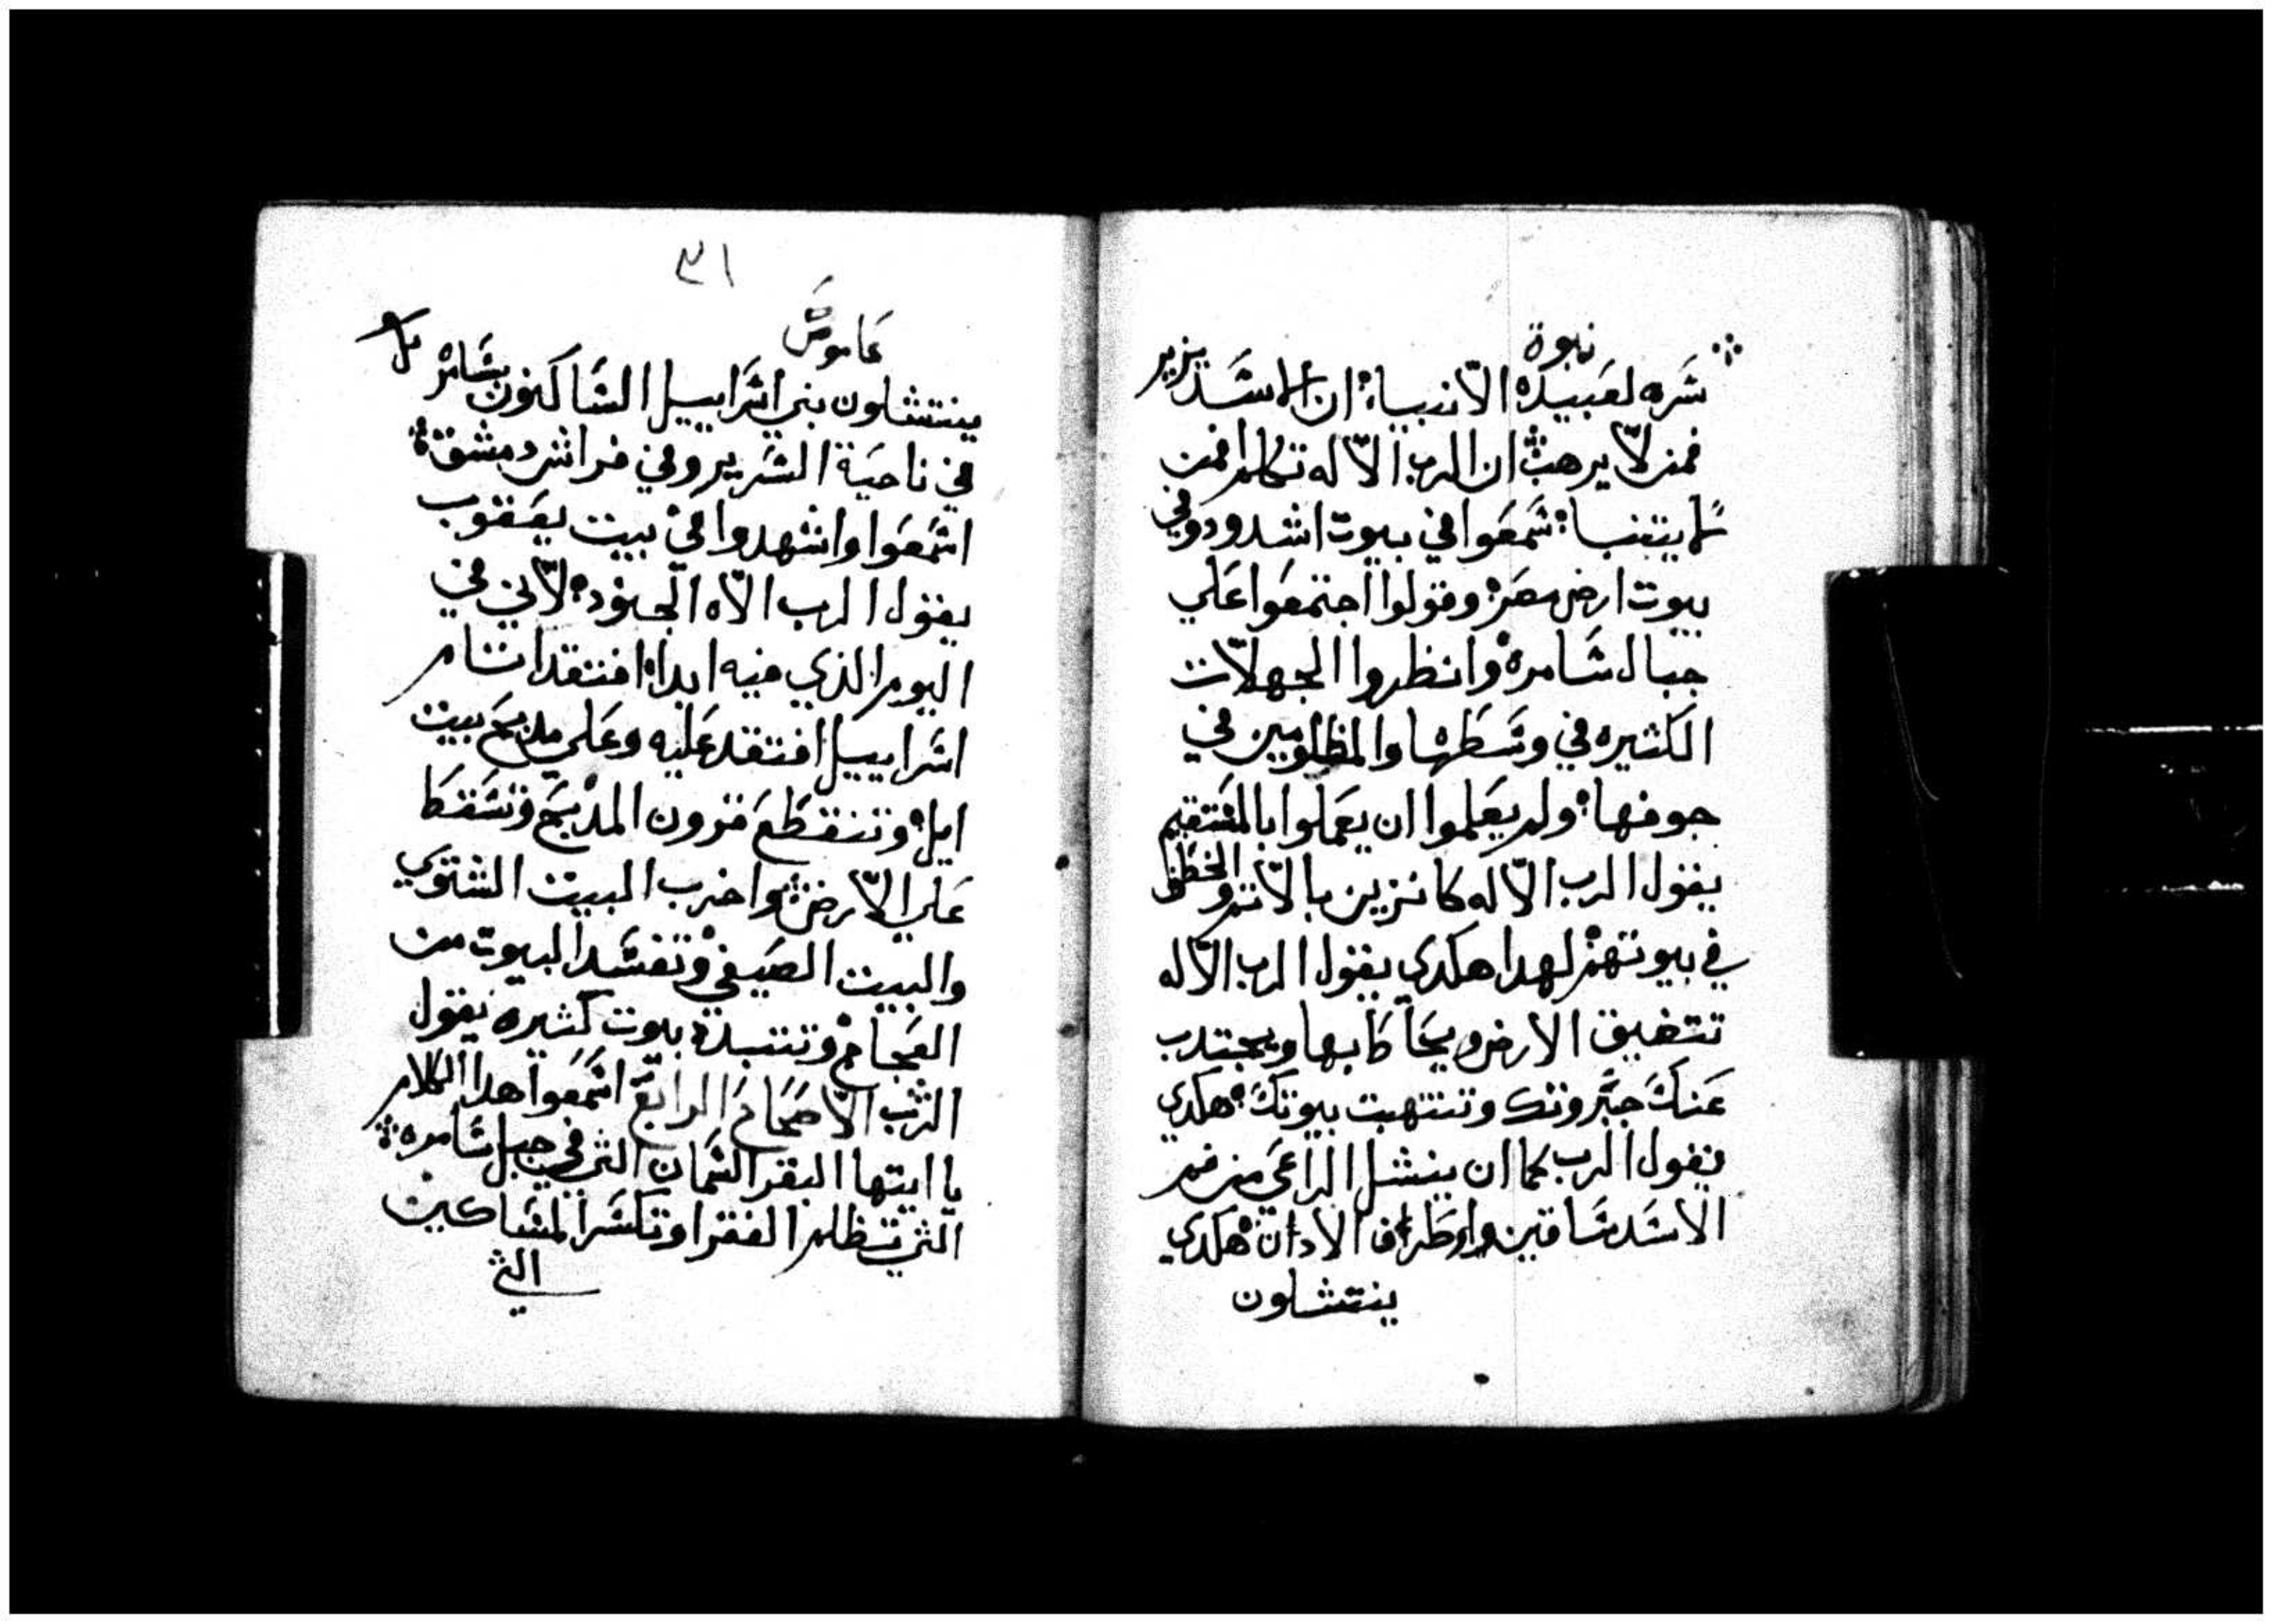 نبوة
سره لعبيده الانبيا؛ ان الاسد يزير
فمن لا يرهب ان الرب الاله تكلم فمن
لا يتنبا؛ سمعوا في بيوت اشدود وفي
بيوت ارض مصر؛ وقولوا اجتمعوا علي
جبال سامرة وانظروا الجهلات
الكثيره في وسطها والمظلومين في
جوفها؛ ولم يعلموا ان يعملوا بالمستقيم
يقول الرب الاله كانزين بالاتم والخطف
في بيوتهم لهدا هكدي يقول الرب الاله
تتضيق الارض ويحاط بها ويجتدب
عنك جبروتك وتنتهبت بيوتك؛ هكدي
يقول الرب كما ان ينشل الراعي من فم
الاسد ساقين واو طراف الادان هكدي
ينتشلون
٣١
عاموص
ينتشلون بني اسراييل الساكنون بسامرة
في ناحية السرير وفي فراش دمشق؛
اسمعوا واشهدوا في بيت يعقوب
يقول الرب الاه الجنود؛ لاني في
اليوم الذي فيه ابدا افتقد اتام
اسراييل افتقد عليه وعلي مدبح بيت
ايل؛ وتنقطع قرون المدبح وتسقط
علي الارض؛ واخرب البيت الشتوي
والبيت الصيفي وتفسد البيوت من
العجاج وتتبدد بيوت كثيره يقول
الرب الاصحاح الرابع اسمعوا هدا الكلام
يا ايتها البقر السمان التي في جبل سامره؛
التي تظلم الفقرا وتكسر المساكين
التي